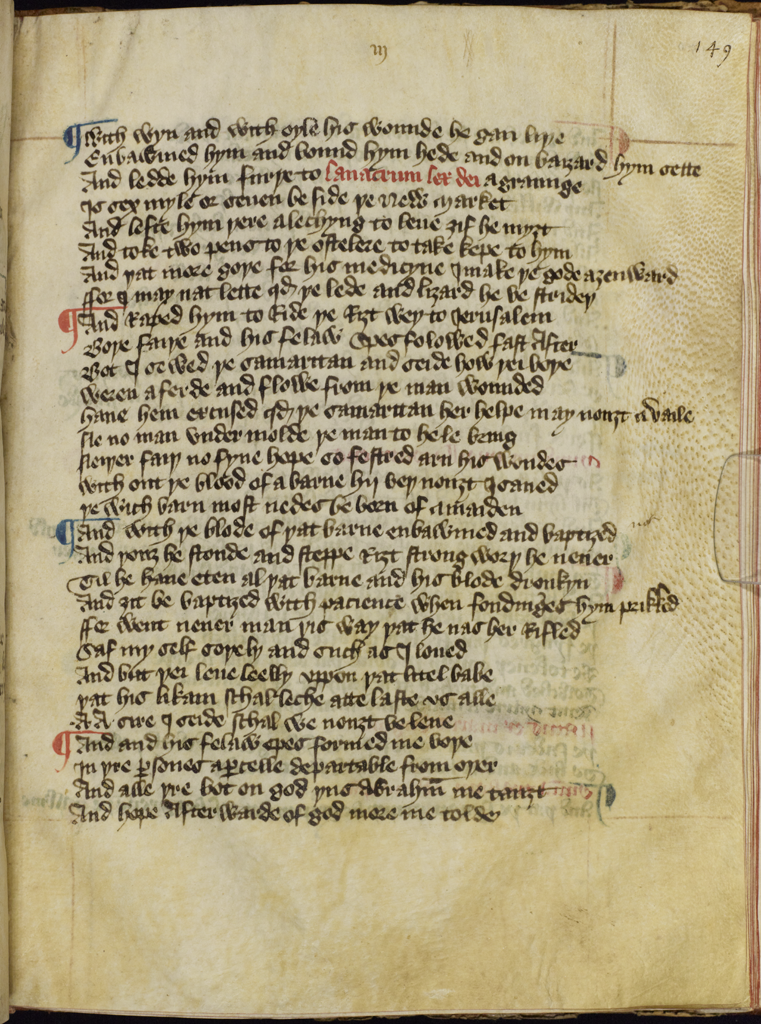 iij
149
¶ With wyn and with oyle his wounde he gan liþe
Enbawmed hym and bound hym hede and on baȝard hym sette
And ledde hym furþe to lauacrum lex dei a graunge
Is sex myle or seuen be side þe New Market
And lefte hym þere a lechyng to leue ȝif he myȝt
And toke two pens to þe ostelere to take kepe to hym
And þat more goþe for his medicyne I make þe gode aȝenward
ffor I may nat lette qđ þe lede and liȝard he be strideþ
¶ And Raped hym to Ride þe Riȝt wey to Ierusalem
Boþe faiþe and his felaw spes folowed fast After
Bot I sewed þe samaritan and seide how þei boþe
weren a ferde and flowe from þe man wounded
haue hem excused qđ þe samaritan her helpe may nouȝt a vaile
Ne no man vnder molde þe man to hele bring
Neiþer faiþ no fyne hope so festred arn his wondes
with out þe blood of a barne hij beþ nouȝt I saued
þe with barn most nedes be born of a maiden
¶ And with þe blode of þat barne enbawmed and baptized
And þouȝ he stonde and steppe Riȝt strong worþ he neuer
Til he haue eten al þat barne and his blode dronkyn
And ȝit be baptized with pacience when fondinges hym prikked
ffor went neuer man þis way þat he nas her Rifled
Saf my self soþely and such as I loued
And but þei leue leelly vppon þat litel babe
þat his likam schal leche atte laste vs alle
A A sire I seide schal we nouȝt be leue
¶ And and his felaw spes formed me boþe
In þre ꝑsones a ꝑcelle departable from oþer
And alle þre bot on god þus Abraham̄ me tauȝt
And hope Afterwarde of god more me tolde